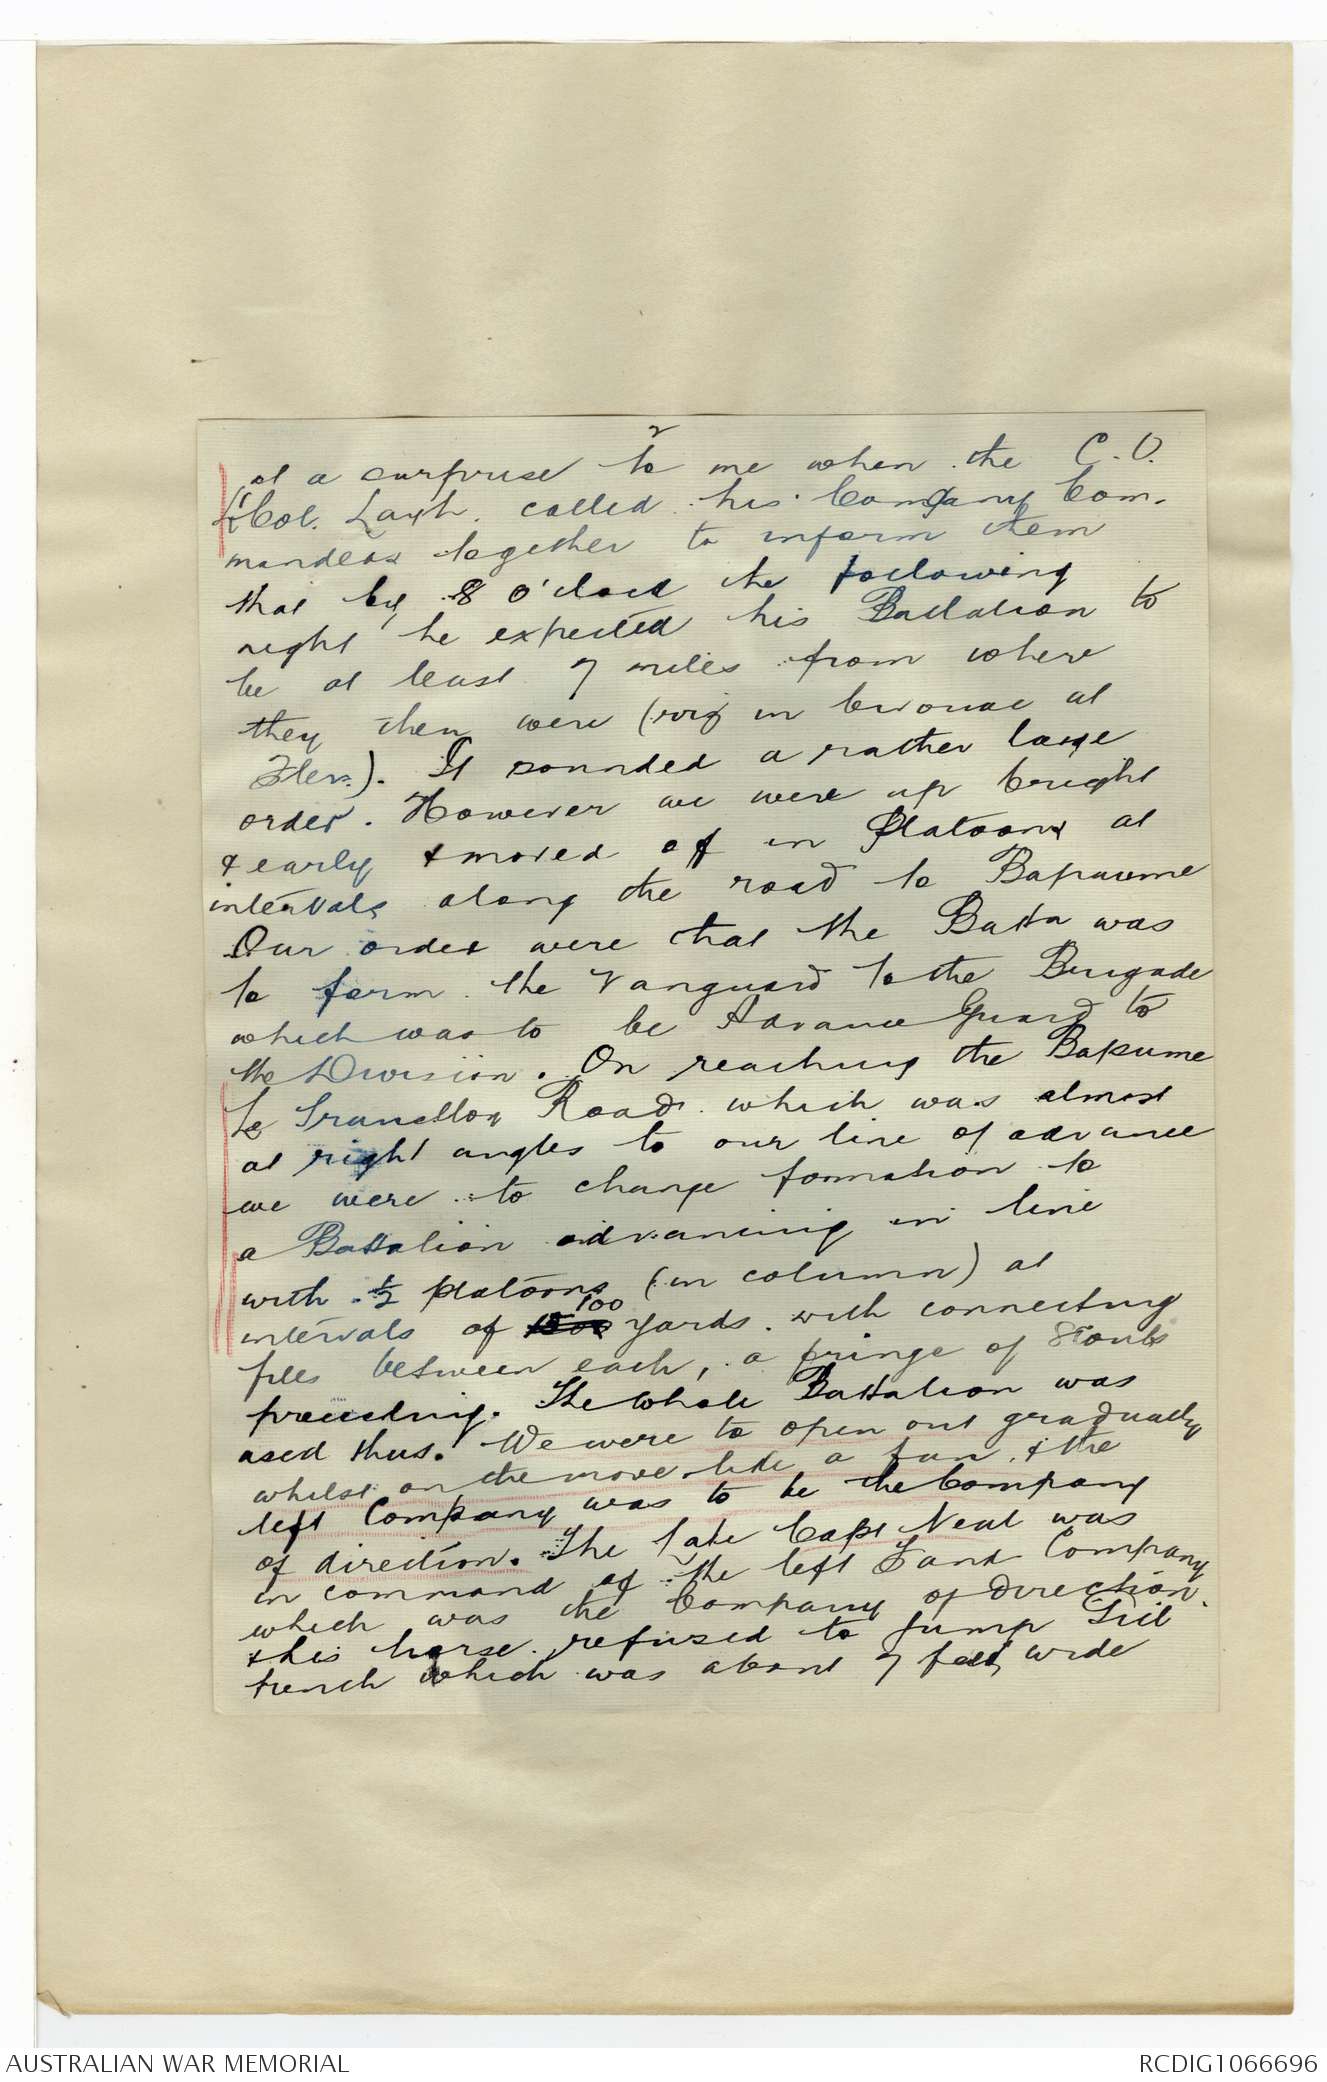 2
of a surprise to me when the C.O.
Lt Col. Layh. called his Company Com-
manders together to inform them
that by 8 o'clock the following
night he expected his Battalion to
be at least 7 miles from where
they then were (viz in bivouac at
Flers). It sounded a rather large
order. However we were up bright
& early & moved off in Platoons at
intervals along the road to Bapaume
Our orders were that the Battn was
to form the Vanguard to the Brigade
which was to be Advance Guard to
the Division. On reaching the Bapume
Le Transloy Road which was almost
at right angles to our line of advance
we were to change formation to
a Battalion advancing in line
with ½ platoons (in column) at
intervals of 100 yards with connecting
files between each, a fringe of Scouts
preceeding. The whole Battalion was
used thus. We were to open out gradually
whilst on the move like a fan, & the
left Company was to be the Company
of direction. The late Capt Neal was
in command of the left Company
which was the Company of direction.
& his horse refused to jump
trench which was about 7 feet wide
AUSTRALIAN WAR MEMORIAL
RCDIG1066696